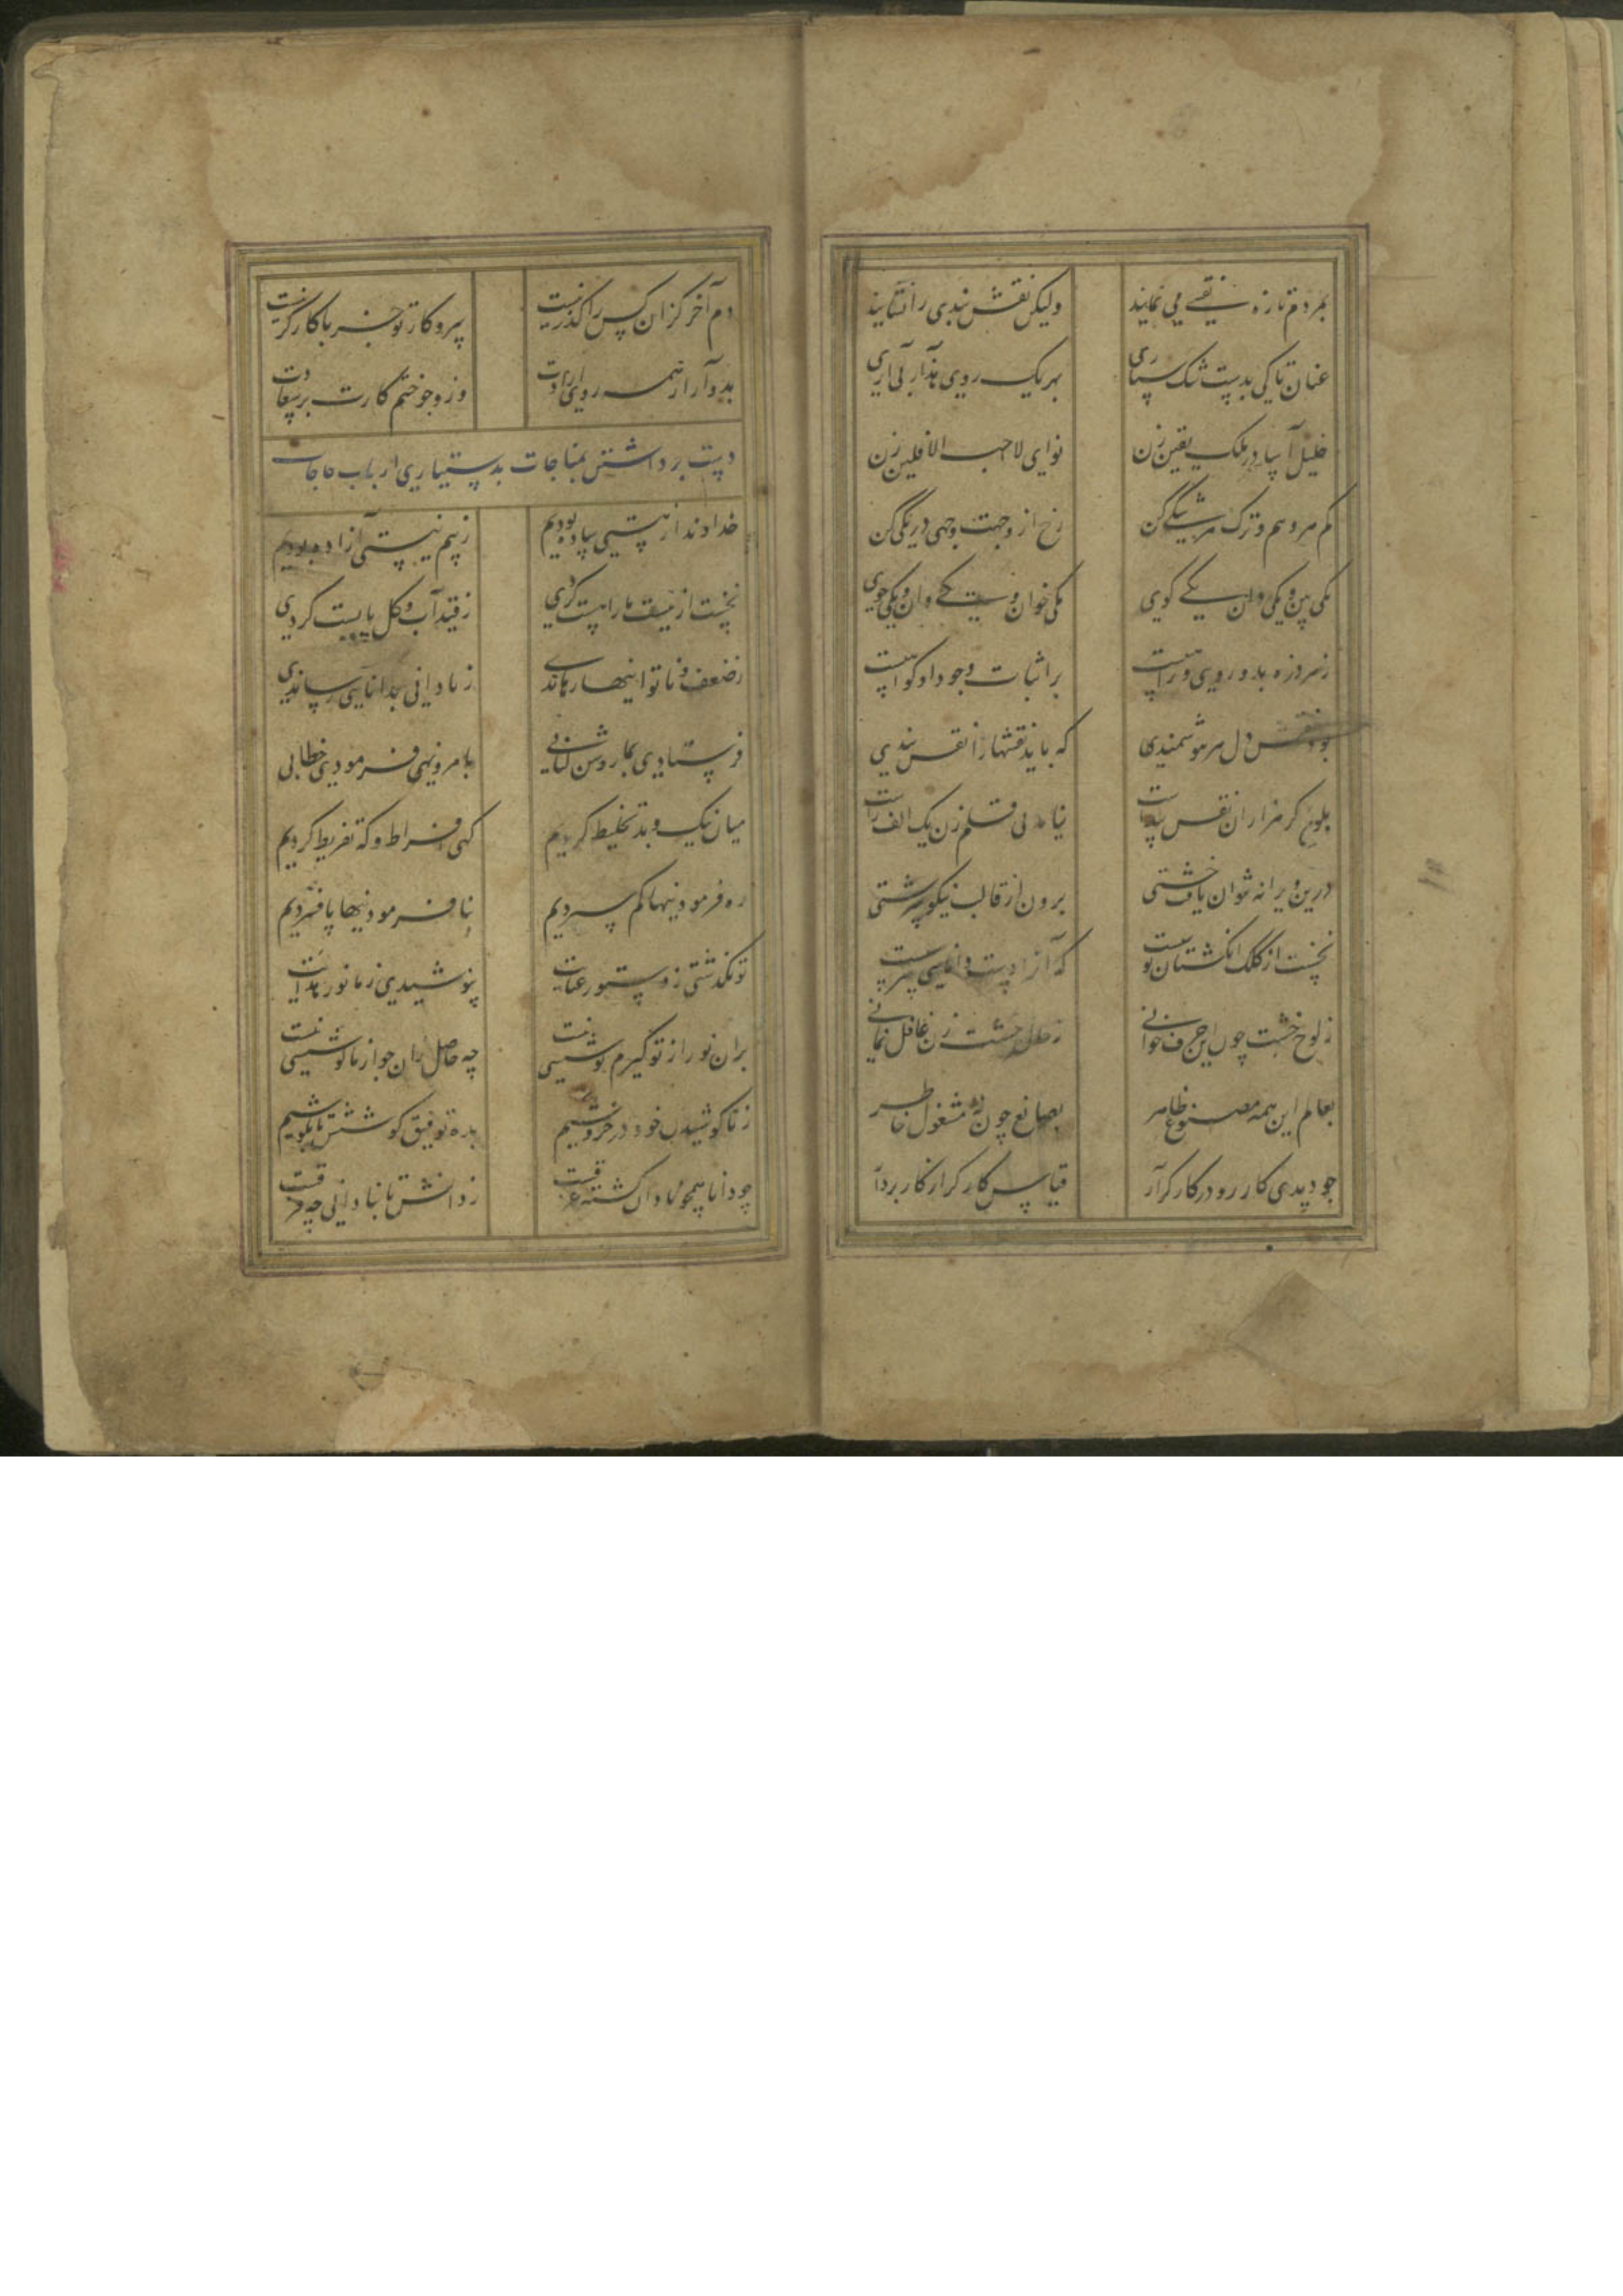 بهر دم تازه نقشی می نمایند ولیکن نقش بندی را نشایند
عنان تا کی بدست شک سپاری بهر یک روی هذا ربی آری
خلیل آسا در ملک یقین زن نوای لا احب الافلین زن
کم هر وهم و ترک هر شکی کن رخ از وجهت وجهی در یکی کن
یکی بین و یکی دان و یکی گوی یکی خوان و یکی خواه و یکی جوی
ز هر ذره بدو رویی و راهیست بر اثبات وجود او گواهیست
بود نقش دل هر هوشمندی که باید نقشها را نقش بندی
بلوحی گر هزاران نقش پیداست نیاید بی قلم زن یک الف راست
درین ویرانه نتوان یافت خشتی برون از قالب نیکو سرشتی
بخشت از کلک انگشتان نوشتست که آنرا دست دانایی سرشتست
ز لوح خشت چون این حرف خوانی ز حال خشت زن غافل نمانی
بعالم این همه مصنوع ظاهر بصانع چون نه مشغول خاطر
چو دیدی کار رو در کارگر آر قیاس کارگر از کار بردار
دم آخر کزان کس را گذر نیست سر و کار تو جز با کارگر نیست
بدو آر از همه روی ارادت وزو جو ختم کارت بر سعادت
دست برداشتن بمناجات بدستیاری ارباب حاجات
خداوندا ز هستی ساده بودیم ز بیم نیستی آزاده بودیم
نخست از نیست ما را هست کردی ز قید آب و گل پابست کردی
ز ضعف و ناتوانیها رهاندی ز نادانی بدانایی رساندی
فرستادی بما روشن کتابی بامر و نهی فرمودی خطابی
میان نیک و بد تخلیط کردیم گهی افراط و گه تفریط کردیم
ره فرمودنیها کم سپردیم بنا فرمودنیها پا فشردیم
تو نگذشتی ز دستور عنایت نپوشیدی ز ما نور هدایت
بران نور از تو گیرم پوششی نیست چه حاصل زان چو از ما کوششی نیست
ز ناکوشیدن خود در خروشیم بده توفیق کوشش تا بکوشیم
چو دانا همچو نادان گشته غرقست ز دانش تا بنادانی چه فرقست